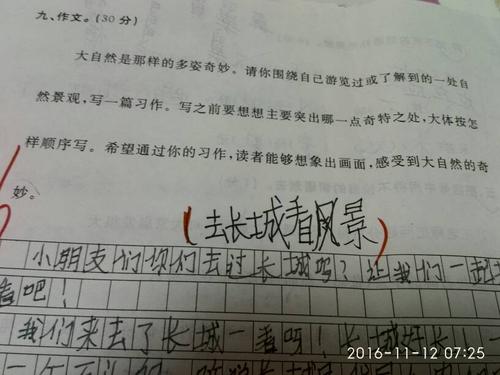 九、作文。(30分)
大自然是那样的多姿奇妙。请你围绕自己游览过或了解到的一处自
然景观,写一篇习作。写之前要想想主要突出哪一点奇特之处,大体按怎
样顺序写。希望通过你的习作,读者能够想象出画面,感受到大自然的奇
妙。
(去长城看风景)
小朋友们你们去过长城吗?让我们一起去
看吧!
我们来去了长城一看呀!长城好长!一
2016-11-12 07:25